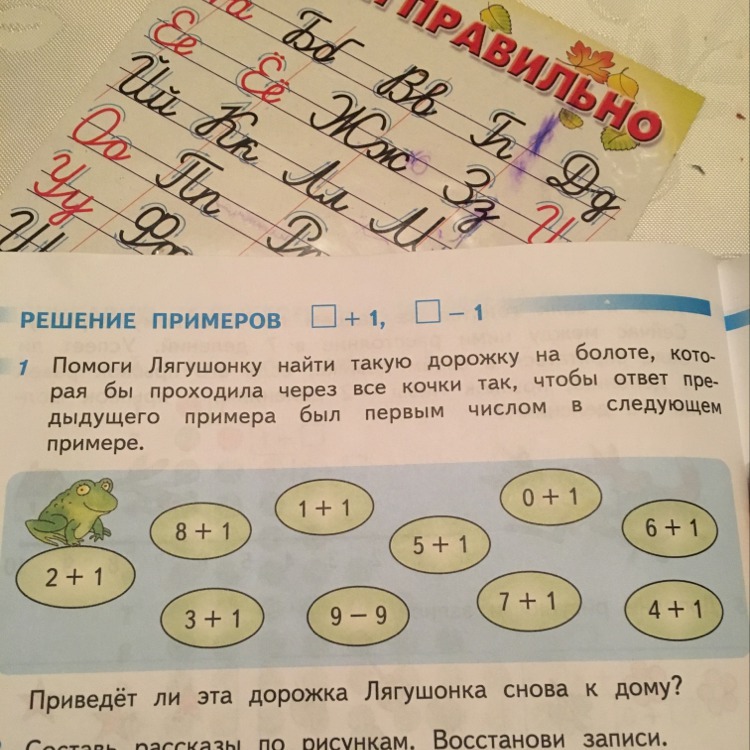 ПРАВИЛЬНО
Бб Вв
Ее Ёё Жж Дд
Йй Кк Лл Зз
Оо Пп
Уу
РЕШЕНИЕ ПРИМЕРОВ □ + 1, □ − 1
1 Помоги Лягушонку найти такую дорожку на болоте, кото-
рая бы проходила через все кочки так, чтобы ответ пре-
дыдущего примера был первым числом в следующем
примере.
8 + 1 1 + 1 0 + 1
2 + 1 5 + 1 6 + 1
3 + 1 9 − 9 7 + 1 4 + 1
Приведёт ли эта дорожка Лягушонка снова к дому?
Составь рассказы по рисункам. Восстанови записи.